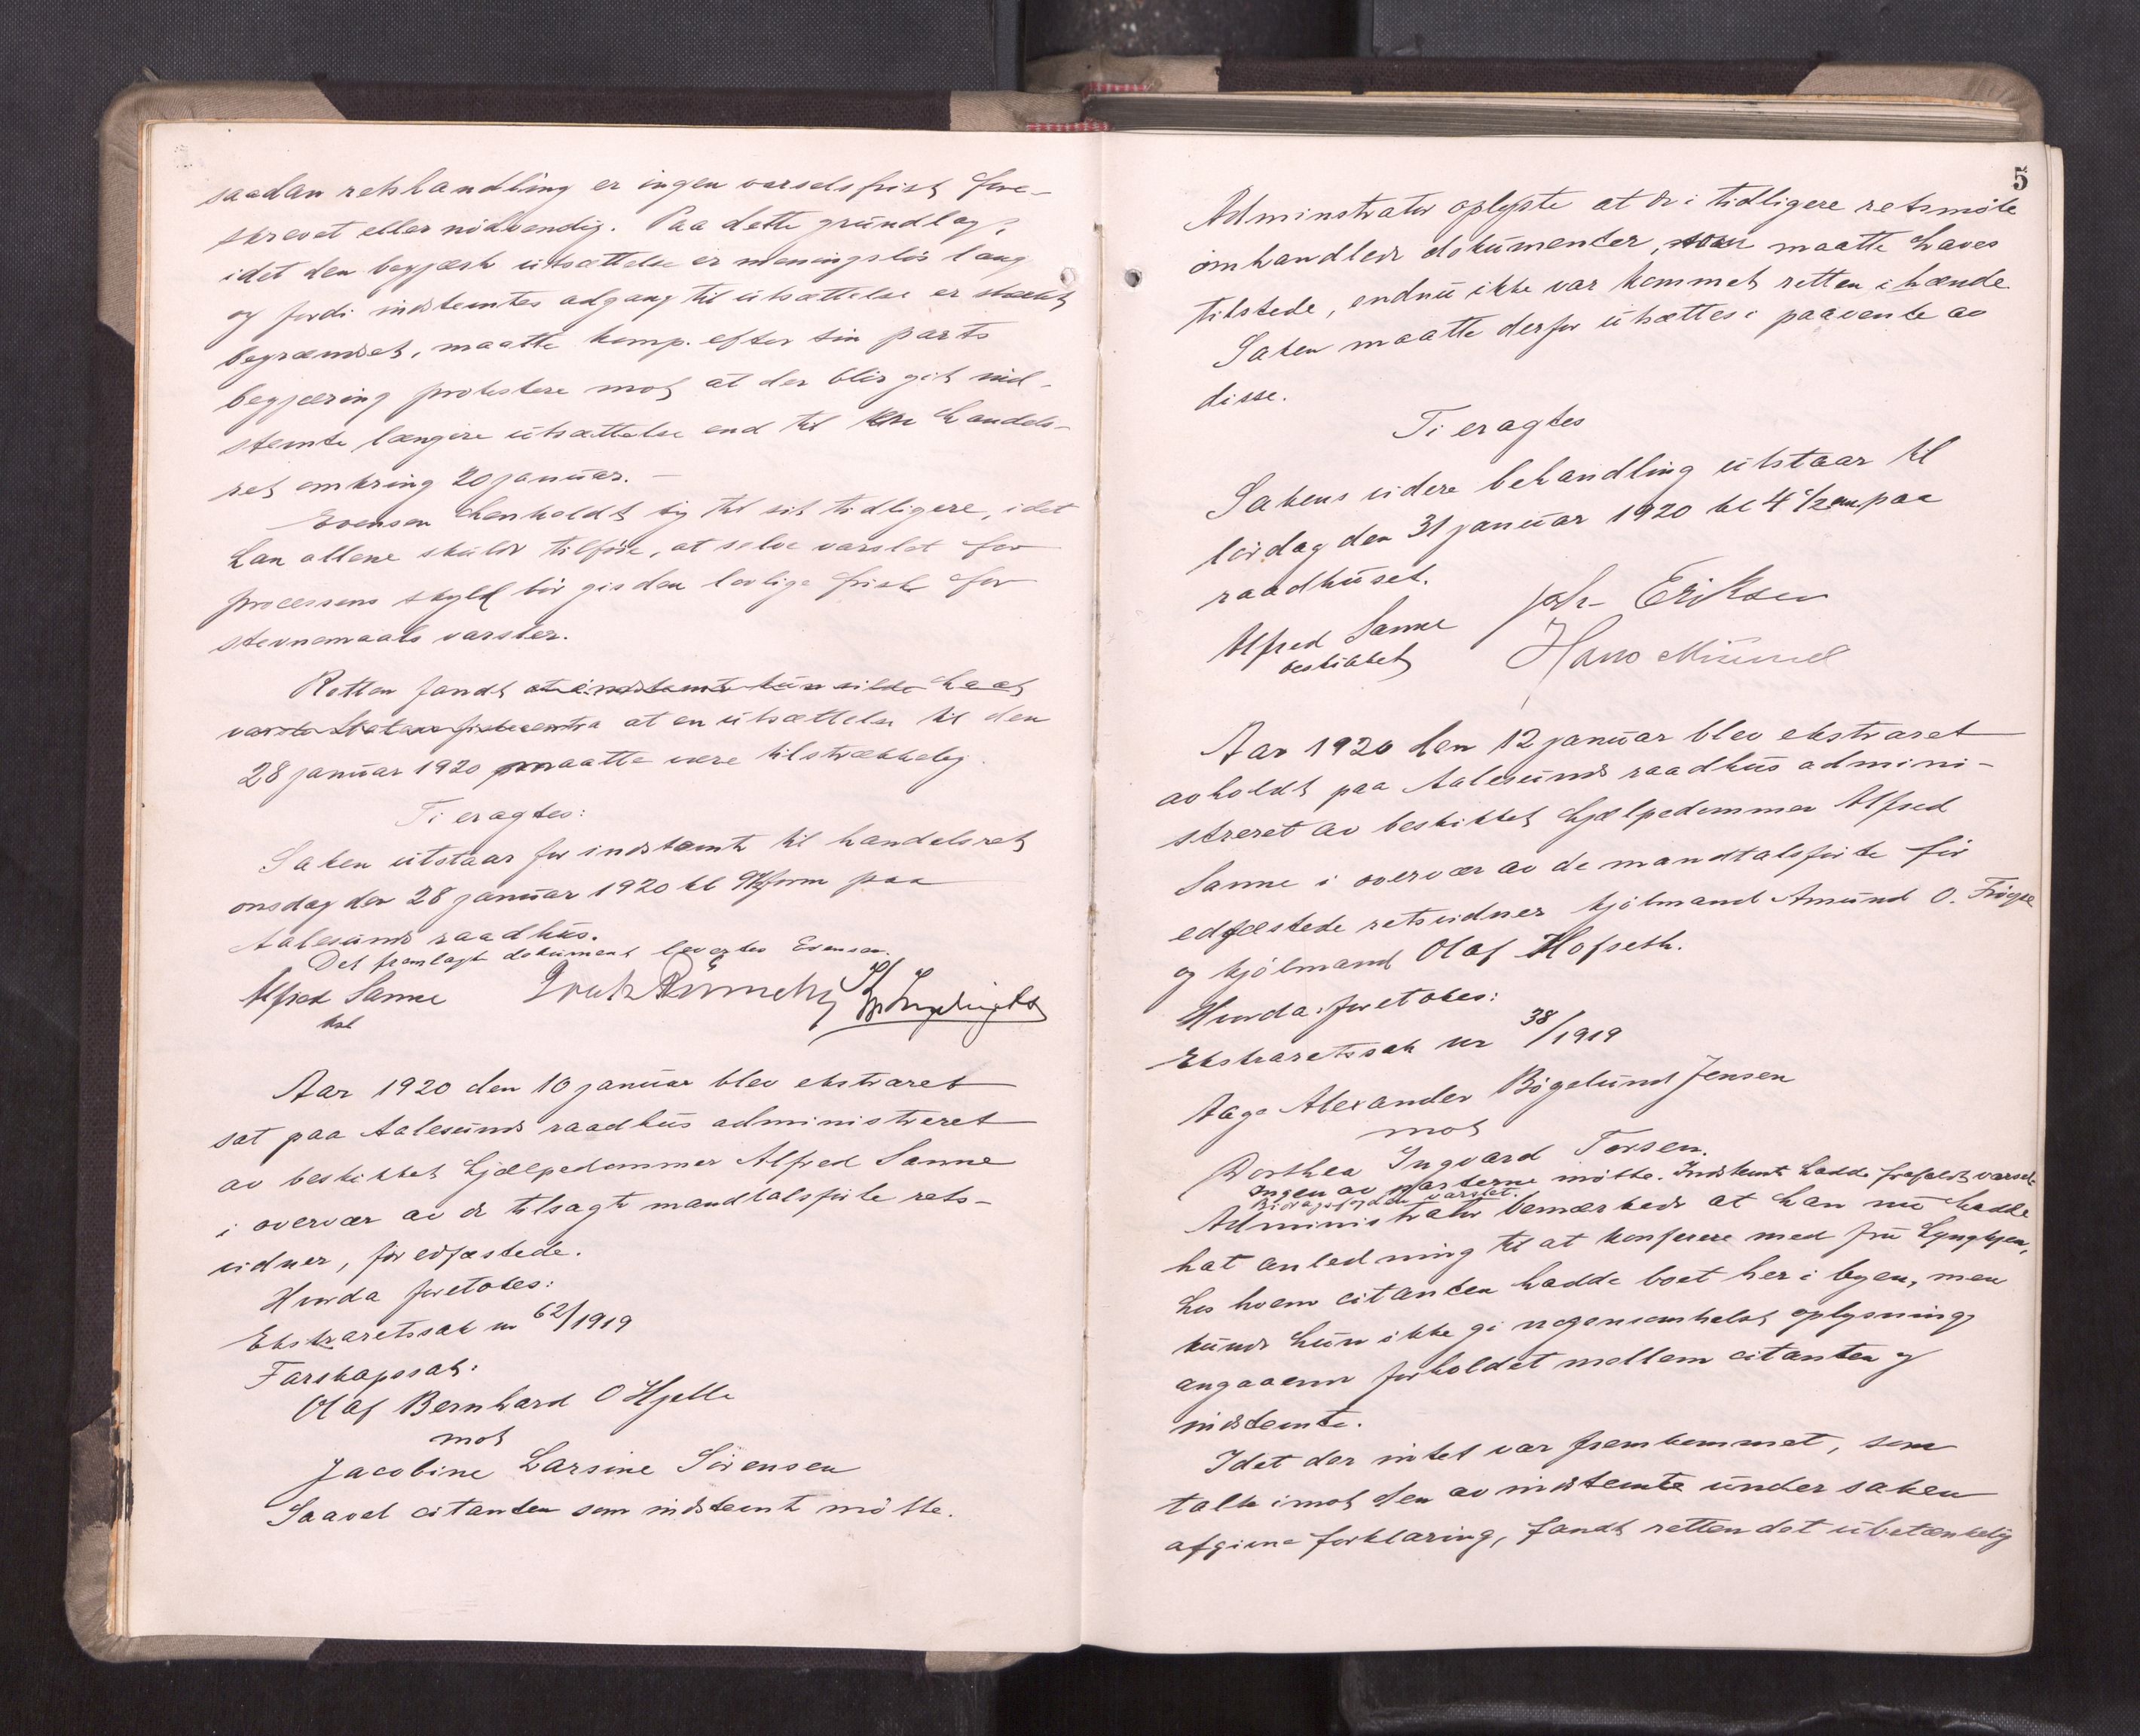 saadan retshandling er ingen varselsfrist fore-
skrevet eller nödvendig. Paa dette grundlag,
idet den begjærte utsættelse er meningslös lang
og fordi indstemtes adgang til utsættelse er sterkt
begrænset, maatte komp. efter sin parts
begjæring protestere mot at der blir git ind-
stemte længere utsættelse end til handels-
ret omkring 20 januar. —
Evensen henholdt sig til sit tidligere, idet
han allene skulde tilföie, at selve varslet for
processens skyld bör gis den lovlige frist for
stevnemaals varsler.
Retten fandt at indstemte kun vilde ha et
varsels at en utsættelse til den
28 januar 1920 maatte være tilstrækkelig.
Ti eragtes:
Saken utstaar for indstemte til handelsret
onsdag den 28 januar 1920 kl 9½ form paa
Aalesunds raadhus.
Det fremlagte dokument levertes Evensen.
Alfred Sanne
bst
Aar 1920 den 10 januar blev ekstraret
sat paa Aalesunds raadhus administreret
av beskikket hjælpedommer Alfred Sanne
i overvær av de tilsagte mandtalsförte rets-
vidner, för edfæstede.
Hvorda foretokes:
Ekstraretssak nr 62/1919
Farskapssak:
Olaf Bernhard O Hjelle
mot
Jacobine Larsine Sörensen
Saavel citanten som indstemte mötte.
5
Adminstrator oplyste at de i tidligere retsmöte
omhandlede dokumenter, som maatte haves
tilstede, endnu ikke var kommet retten ihænde.
Saken maatte derfor utsættes i paavente av
disse.
Ti eragtes
Sakens videre behandling utstaar til
lördag den 31 januar 1920 kl 4½ em. paa
raadhuset.
Alfred Sanne Joh Eriksen
beskikket Hans
Aar 1920 den 12 januar blev ekstraret
avholdt paa Aalesunds raadhus admini-
streret av beskikket hjælpedommer Alfred
Sanne i overvær av de mandtalsförte för
edfæstede retsvidner kjölmand Amund O.
og kjölmand Olaf Hofseth.
Hvorda foretokes:
Ekstraretssak nr 38/1919
Aage Alexander Bögelund Jensen
mot
Dorthea Ingvard Torsen.
Ingen av parterne mötte. Indstemte hadde frafaldt varsel.
Bidragsfogden varslet.
Administrator bemærkede at han nu hadde
hat anledning til at konferere med fru Lyngbyen,
hos hvem citanten hadde boet her i byen, men
kunde hun ikke gi nogensomhelst oplysning
angaaende forholdet mellem citanten og
indstemte.
Idet der intet var fremkommet, som
talte imot den av indstemte under saken
afgivne forklaring, fandt retten det ubetænkelig